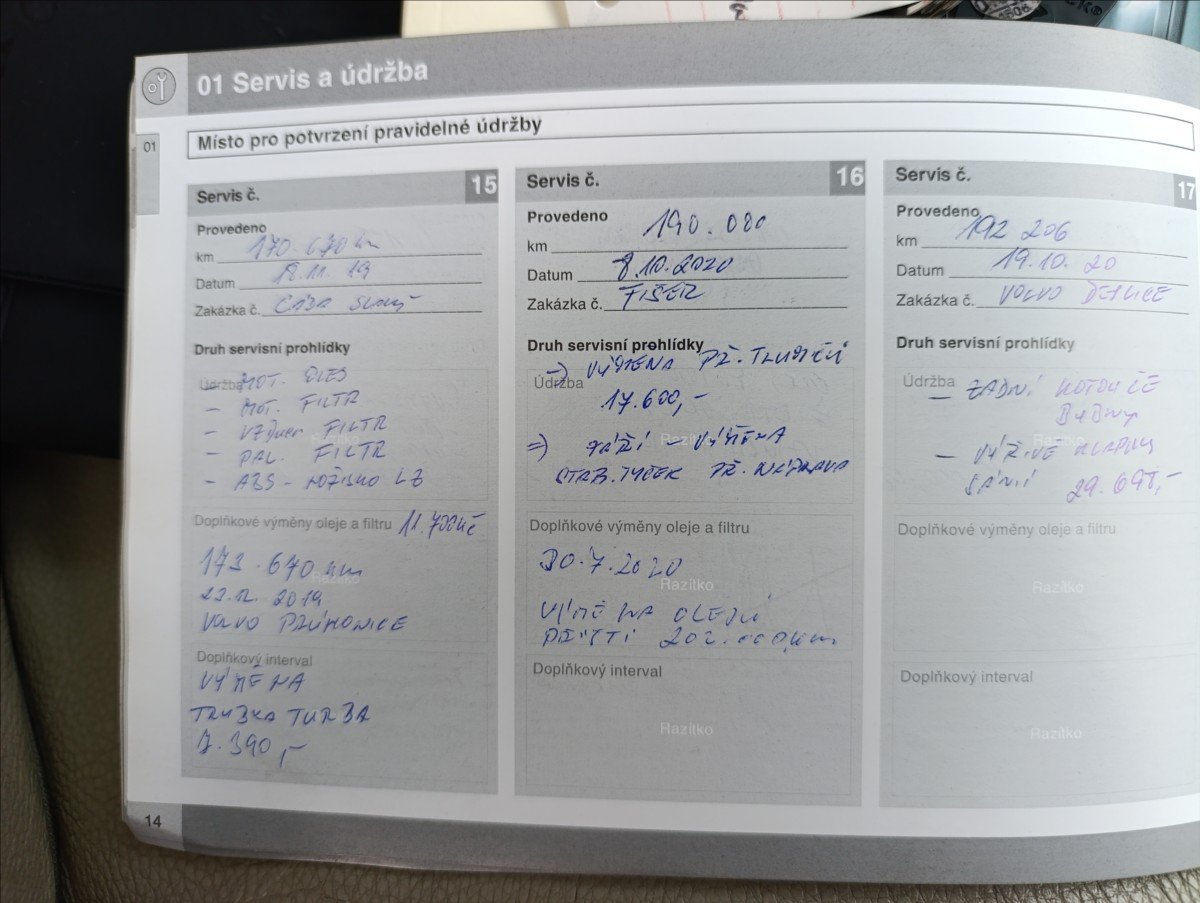 01 Servis a údržba
01
Místo pro potvrzení pravidelné údržby
Servis č. 15
Provedeno
km 170.670 km
Datum 18.11. 19
Zakázka č.
Druh servisní prohlídky
Údržba
- MOT. OLEJ
- MOT. FILTR
- VZDUCH. FILTR
- PAL. FILTR
- ABS - LOŽISKO LZ
Razítko
Doplňkové výměny oleje a filtru 11.700 Kč
173.670 km
Razítko
23.12. 2019
VOLVO PRŮHONICE
Doplňkový interval
VÝMĚNA
TRUBKA TURBA
7.390,-
Servis č. 16
Provedeno
km 190.000
Datum 8.10.2020
Zakázka č. FIŠER
Druh servisní prohlídky
Údržba
=> VÝMĚNA PŘ. TLUMIČŮ
17.600,-
Razítko
=> ZÁŘÍ - VÝMĚNA
STAB. TYČEK PŘ. NÁPRAVA
Doplňkové výměny oleje a filtru
30.7.2020
Razítko
VÝMĚNA OLEJŮ
PŘÍŠTÍ 202.000 km
Doplňkový interval
Razítko
Servis č. 17
Provedeno
km 192 206
Datum 19.10. 20
Zakázka č. VOLVO
Druh servisní prohlídky
Údržba
- ZADNÍ KOTOUČE
BUBNY
Razítko
- VÍŘIVÉ KLAPKY
SÁNÍ 29.698,-
Doplňkové výměny oleje a filtru
Razítko
Doplňkový interval
Razítko
14